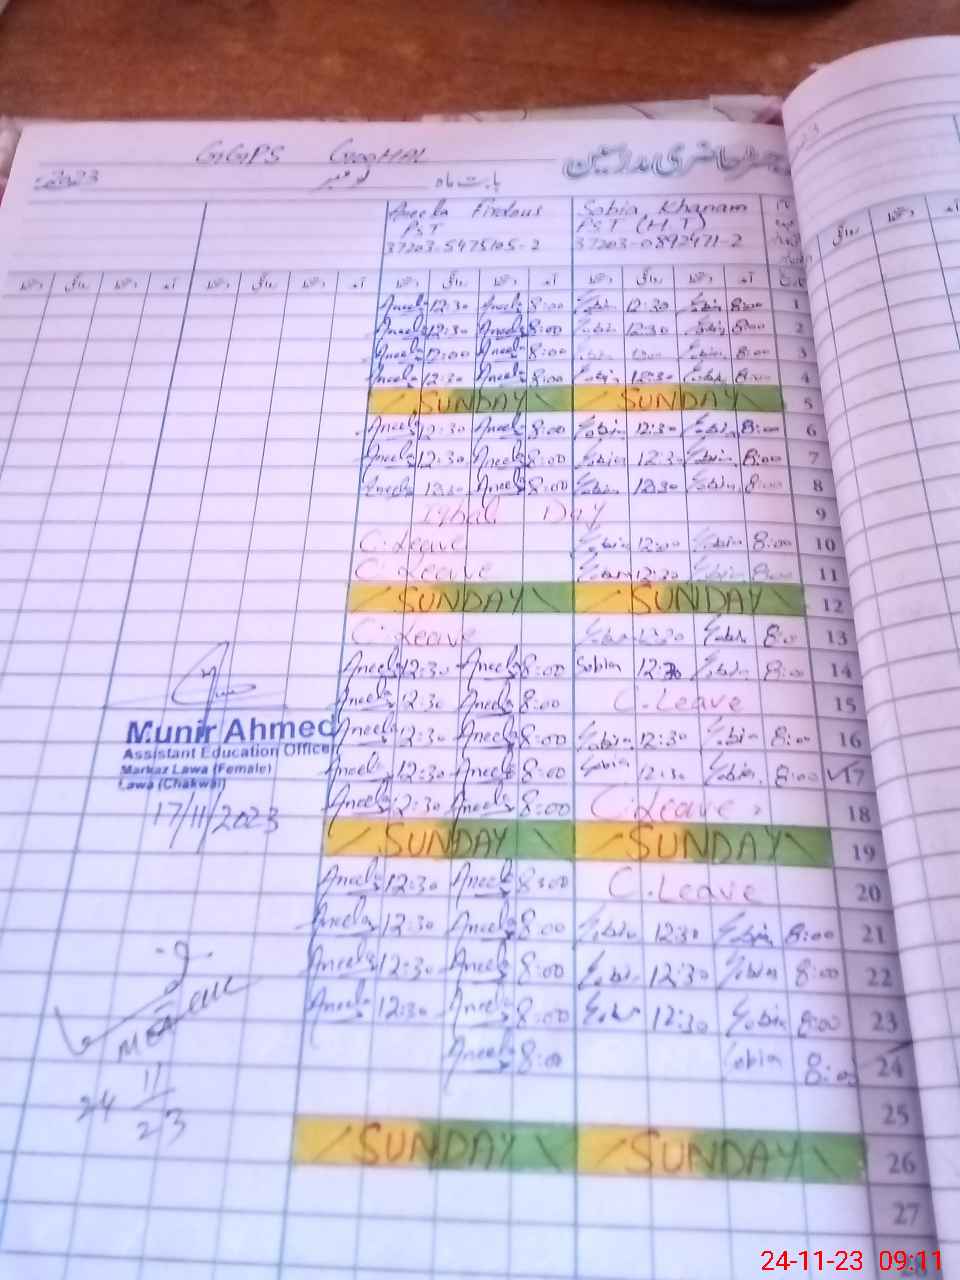 GGPS
رجسٹر حاضری مدرسین
2023 نومبر بابت ماہ
Aneela Firdous Sabia Khanam
PST PST (H.T)
37203-5475105-2 37203-0892471-2
Aneela 12:30 Aneela 8:00 Sabia 12:30 Sabia 8:00 1
Aneela 12:30 Aneela 8:00 Sabia 12:30 Sabia 8:00 2
Aneela 12:00 Aneela 8:00 Sabia 8:00 3
Aneela 12:30 Aneela 8:00 Sabia 12:30 Sabia 8:00 4
SUNDAY SUNDAY 5
Aneela 12:30 Aneela 8:00 Sabia 12:30 Sabia 8:00 6
Aneela 12:30 Aneela 8:00 Sabia 12:30 Sabia 8:00 7
Aneela 12:30 Aneela 8:00 Sabia 12:30 Sabia 8:00 8
Iqbal Day 9
C.Leave Sabia 12:00 Sabia 8:00 10
C.Leave Sabia 12:30 Sabia 8:00 11
SUNDAY SUNDAY 12
C.Leave Sabia 12:30 Sabia 8:00 13
Aneela 12:30 Aneela 8:00 Sabia 12:30 Sabia 8:00 14
Aneela 12:30 Aneela 8:00 C.Leave 15
Aneela 12:30 Aneela 8:00 Sabia 12:30 Sabia 8:00 16
Aneela 12:30 Aneela 8:00 Sabia 12:30 Sabia 8:00 17
Aneela 12:30 Aneela 8:00 C.Leave 18
SUNDAY SUNDAY 19
Aneela 12:30 Aneela 8:00 C.Leave 20
Aneela 12:30 Aneela 8:00 Sabia 12:30 Sabia 8:00 21
Aneela 12:30 Aneela 8:00 Sabia 12:30 Sabia 8:00 22
Aneela 12:30 Aneela 8:00 Sabia 12:30 Sabia 8:00 23
Aneela 8:00 Sabia 8:00 24
25
SUNDAY SUNDAY 26
27
Munir Ahmed
Assistant Education Officer
Markaz Lawa (Female)
Lawa (Chakwal)
17/11/2023
24 11
23
24-11-23 09:11